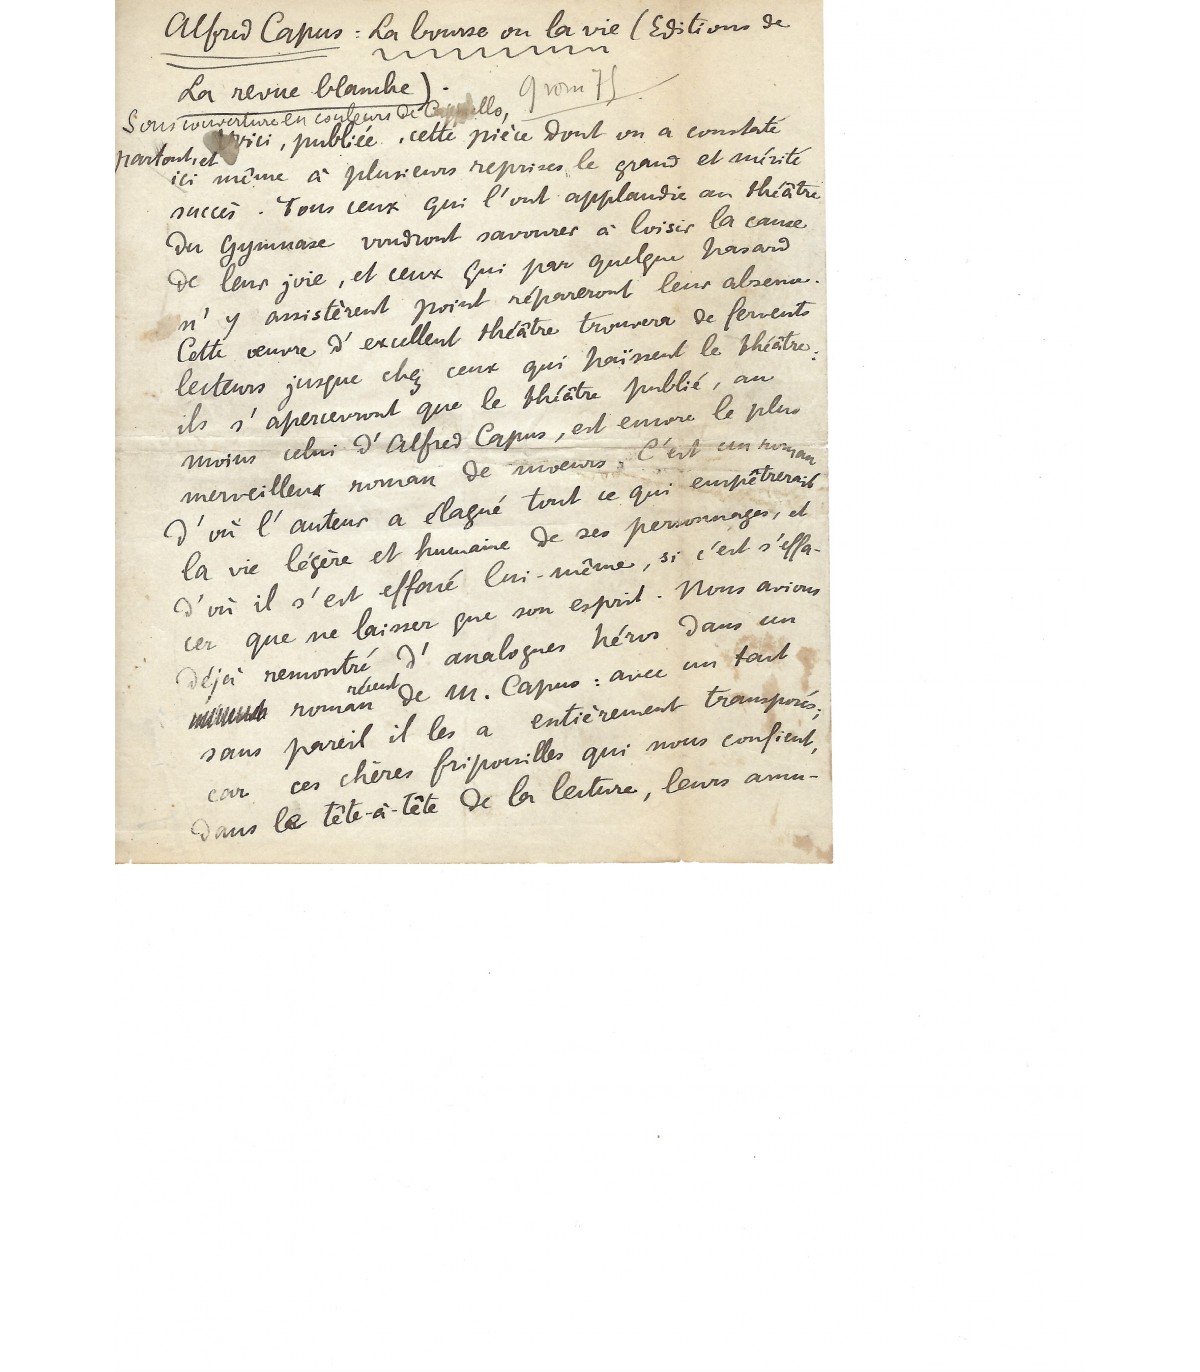 Alfred Capus : La bourse ou la vie (Editions de
La revue blanche).
Sous couverture en couleurs de Cappiello,
voici, publiée, cette pièce dont on a constaté
partout, et
ici même à plusieurs reprises, le grand et mérité
succès. Tous ceux qui l'ont applaudie au théâtre
du Gymnase voudront savourer à loisir la cause
de leur joie, et ceux qui par quelque hasard
n'y assistèrent point répareront leur absence.
Cette œuvre d'excellent théâtre trouvera de fervents
lecteurs jusque chez ceux qui haïssent le théâtre :
ils s'apercevront que le théâtre publié, au
moins celui d'Alfred Capus, est encore le plus
merveilleux roman de mœurs. C'est un roman
d'où l'auteur a élagué tout ce qui empêtrerait
la vie légère et humaine de ses personnages, et
d'où il s'est effacé lui-même, si c'est s'effa-
cer que ne laisser que son esprit. Nous avions
déjà rencontré d'analogues héros dans un
récent
roman de M. Capus : avec un tact
sans pareil il les a entièrement transposés ;
car ces chères fripouilles qui nous confient,
dans le tête-à-tête de la lecture, leurs amu-